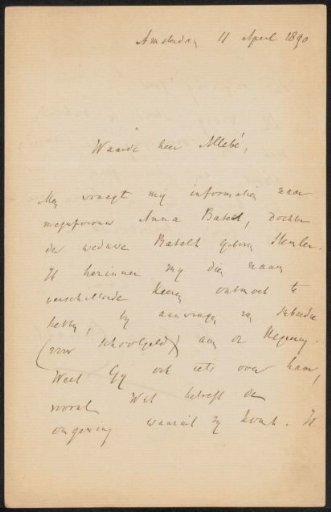 Amsterdam 11 April 1890
Waarde heer Allebé,
Men vraagt mij informatien naar
mejufvrouw Anna Batelt, dochter
der weduwe Batelt geboren
Ik herinner mij dien naam
verschillende keeren ontmoet te
hebben, bij aanvragen om subsidie
(voor schoolgeld) aan de Regering.
Weet Gij ook iets over haar,
vooral wat betreft de
omgeving waaruit zij komt. Ik